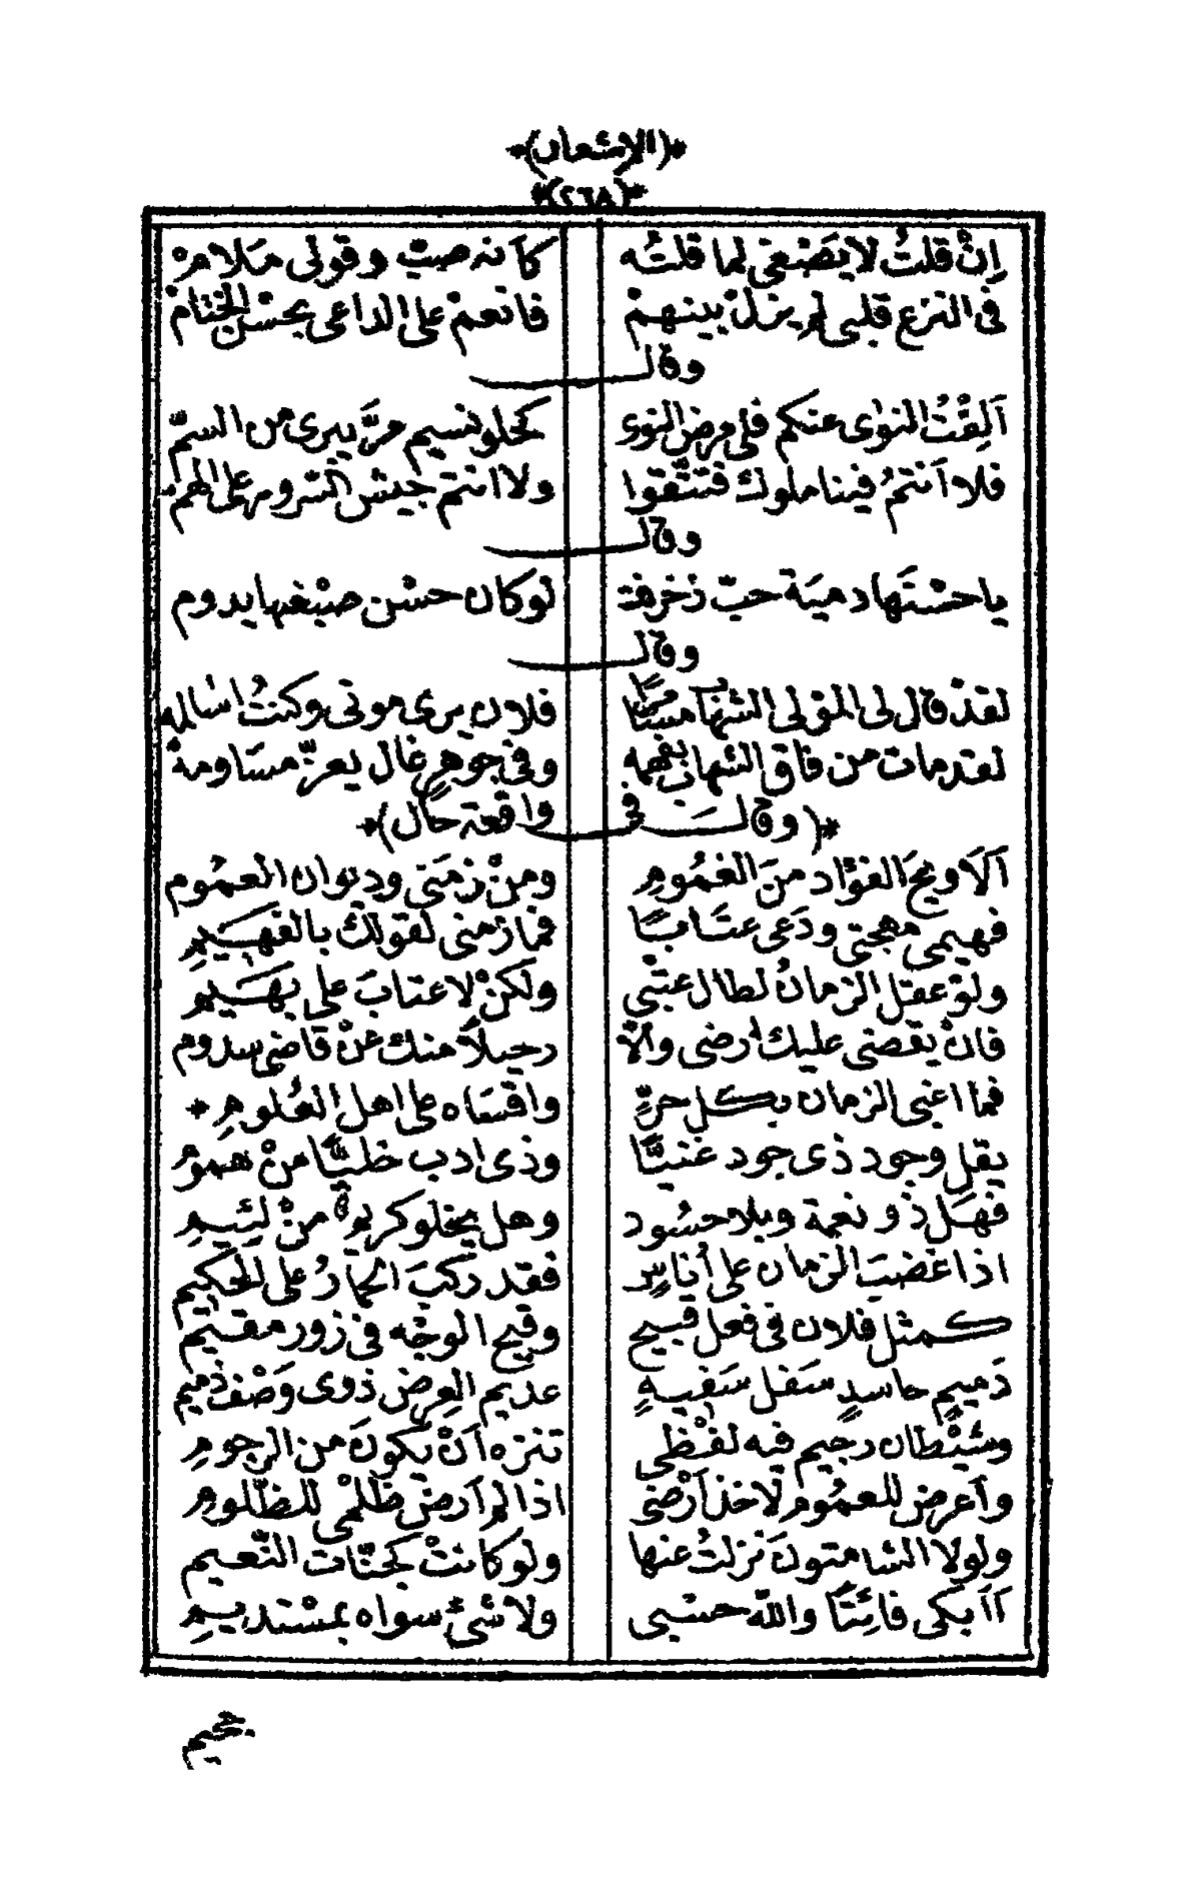 *(الاشعار)*
*(٢٦٨)*
اِنْ قلتُ لا يَصْغى لما قلتُه كأنه صبّ وقولى مَلامْ
فى النزع قلبى لم يزلْ بينهمْ فانعمْ على الداعى بحسْن الختامْ
وقال
اَلِفْتُ النوٰى عنكم فلى مرض النوى كخلو نسيم مرَّ يبرى من السمّ
فلا انتمُ فينا ملوك فتتّقوا ولا انتم جيش السّرور على الهم
وقال
يا حسْنَها دمية حبّ زخرفت لو كان حسْن صبْغها يدوم
وقال
لقدْ قال لى المولى الشهاب فلان يرى موتى وكنتُ اسالمه
لقد مات من فاق الشهاب بفهمه وفى جوهرٍ غال يعزّ مسَاومهْ
*(وقال فى واقعة حال)*
اَلَا ويحَ الفؤاد منَ الغمُومِ ومنْ زمَنى وديوان العمُوم
فهيمى مهجتى ودَعى عتَابًا فما زمنى لقولك بالفهَيمِ
ولوْ عقل الزمانُ لطال عتْبى ولكنْ لا عتابَ على بهَيمِ
فانْ يقضى عليك ارضى والّا رحيلاً منك عنْ قاضى سدوم
فما اغبى الزمان بكل حرٍّ واقسَاه على اهل العُلومِ *
يقل وجود ذى جود غنيًّا وذى ادب خليًّا منْ همومِ
فهَل ذو نعمة وبلا حسُود وهل يخلو كريمٌ منْ لئيمِ
اذا غضبَ الزمان على أناسٍ فقد ركبَ الحمارُ على الحكيم
كمثل فلان فى فعل قبيح وقبيح الوجْه فى زور مقيم
ذَميمٍ حاسدٍ سَفل سَفيهٍ عديم العِرض ذوى وَصْف ذميم
وشيْطان رجيم فيه لفْظى تنزه اَنْ يكونَ من الرجومِ
وأعرض للعمُوم لاخذ اَرْضى اذا لم اَرضَ ظلْمى للظّلومِ
ولولا الشامتونَ نزلتُ عنها ولو كانتْ كجنّات النّعيم
اَاَبكى فائِتًا واللّه حسْبى ولا شئ سواه بمسْتديمِ
جحيم